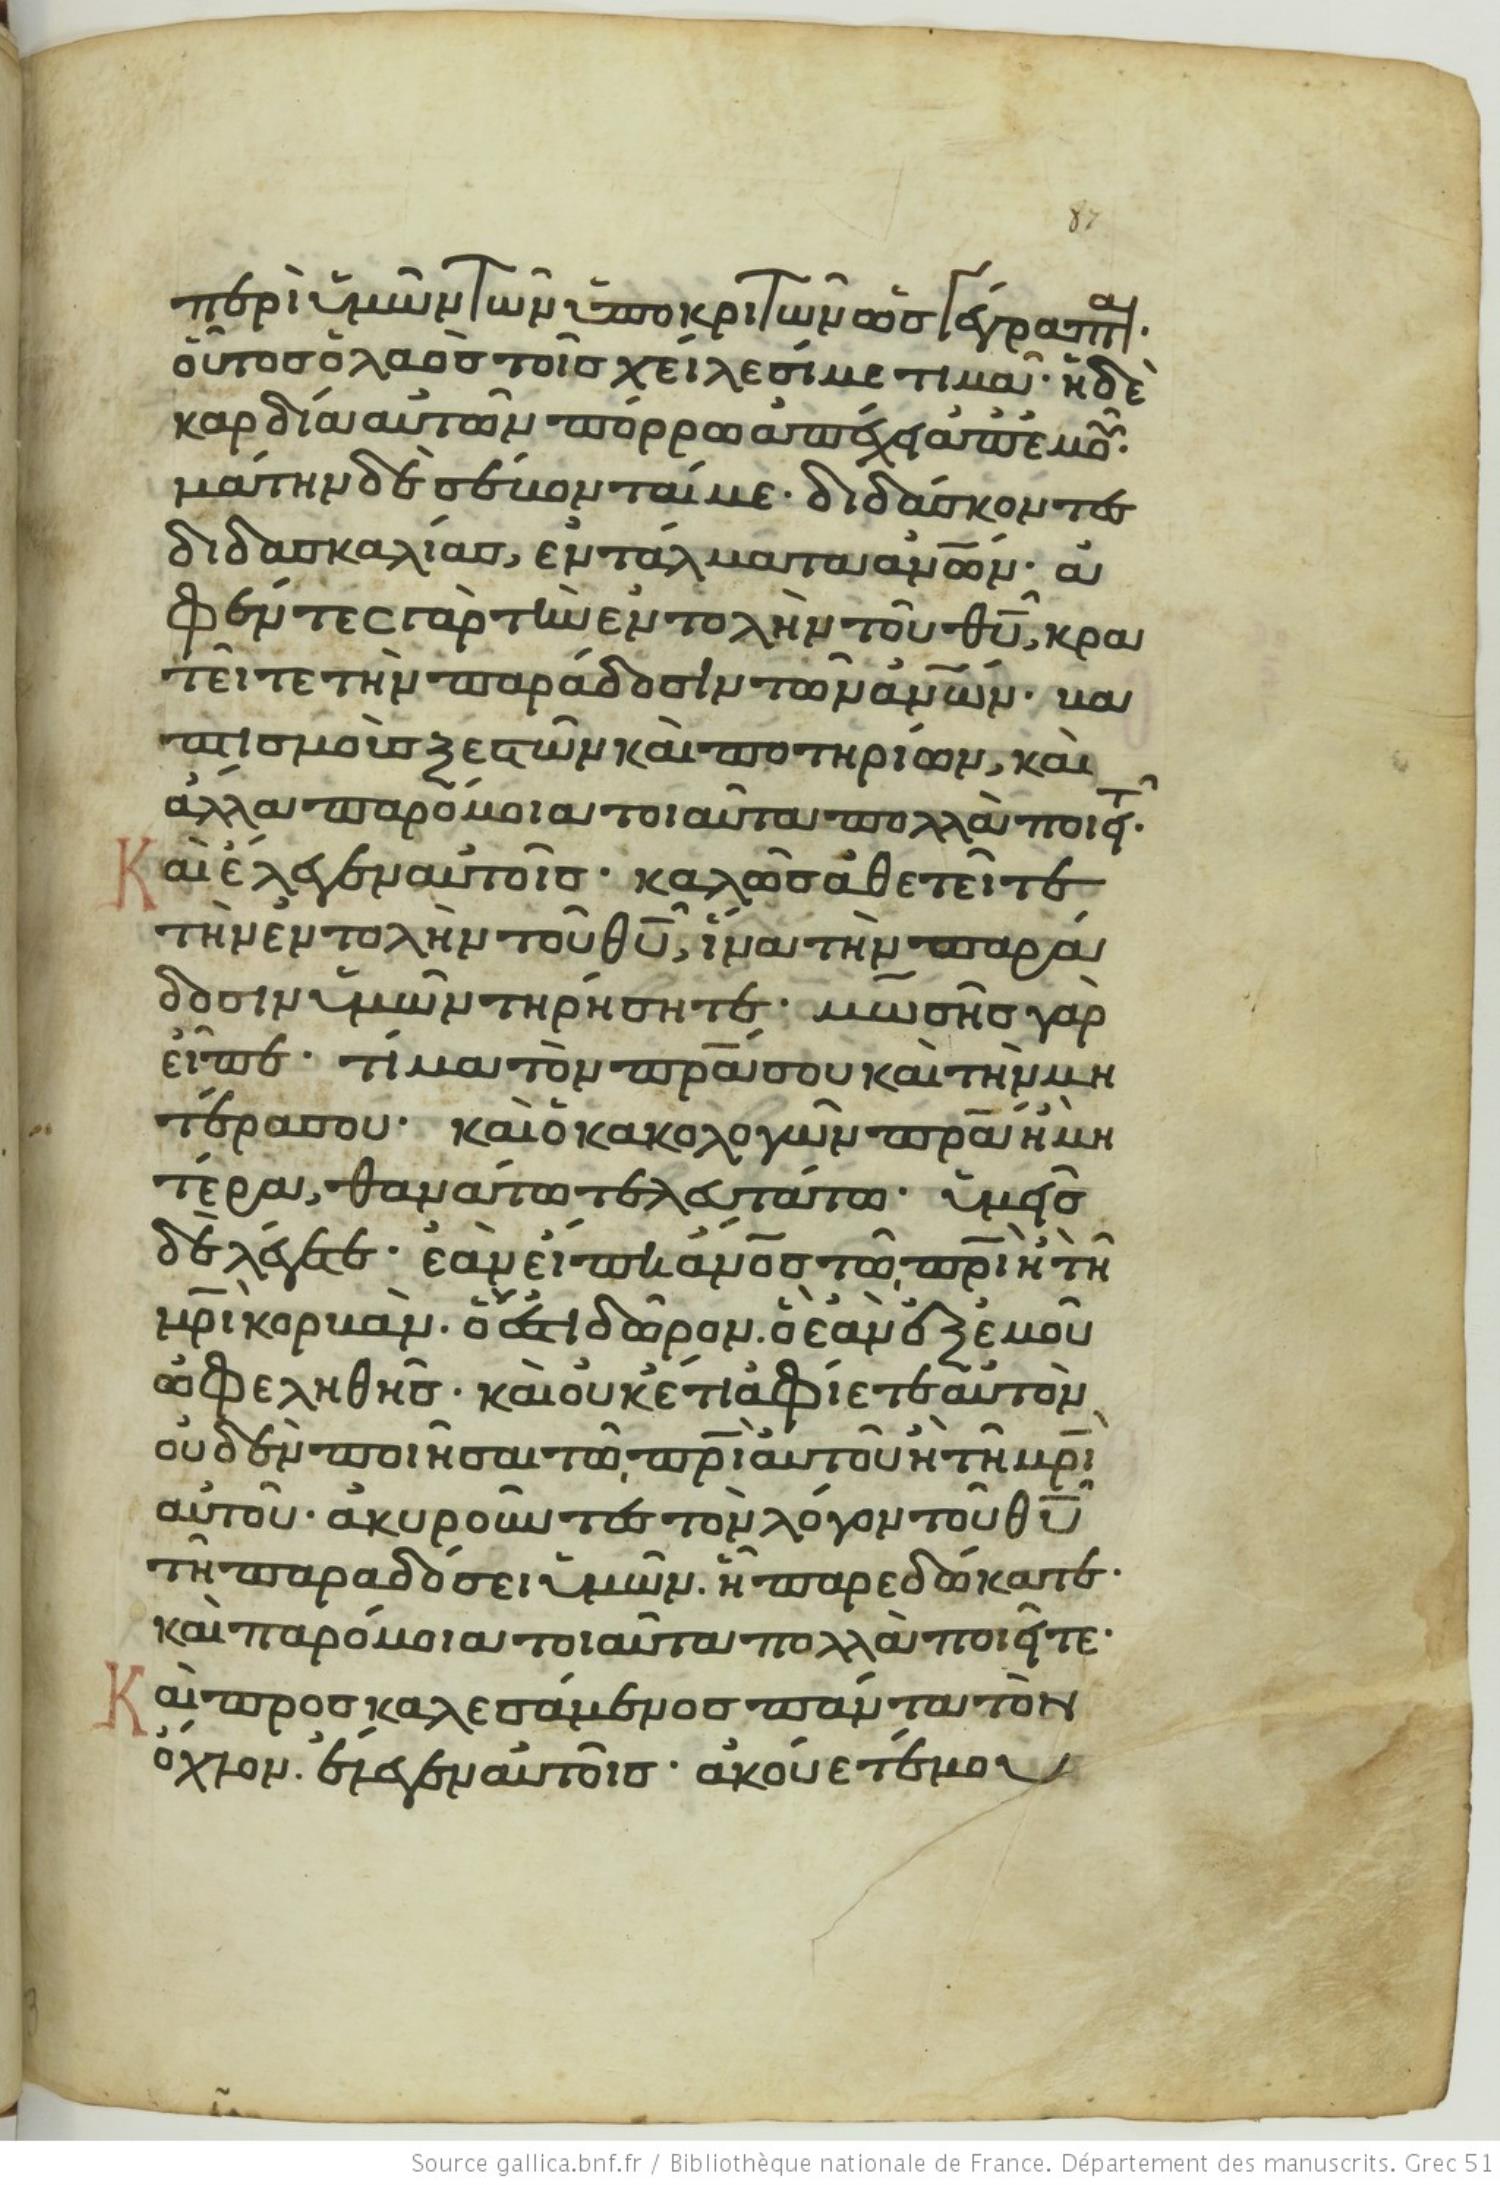 87
περὶ ὑμῶν τῶν ὑποκριτῶν ὡς γέγραπται·
οὗτος ὁ λαὸς τοῖς χείλεσί με τιμᾶ· ἡ δὲ
καρδία αὐτῶν πόρρω ἀπέχει ἀπ' ἐμοῦ·
μάτην δὲ σέβονταί με· διδάσκοντες
διδασκαλίας, ἐντάλματα ἀν̅ω̅ν· ἀ
φέντες γὰρ τὴν ἐντολὴν τοῦ θ̅υ̅, κρα
τεῖτε τὴν παράδοσιν τῶν ἀν̅ω̅ν· βα
πτισμοὺς ξεστῶν καὶ ποτηρίων, καὶ
ἄλλα παρόμοια τοιαῦτα πολλὰ ποιεῖτ·
Καὶ ἔλεγεν αὐτοῖς· καλῶς ἀθετεῖτε
τὴν ἐντολὴν τοῦ θ̅υ̅, ἵνα τὴν παρά
δοσιν ὑμῶν τηρήσητε· μωσῆς γὰρ
εἶπε· τίμα τὸν π̅ρ̅α̅ σου καὶ τὴν μη
τέρα σου· καὶ ὁ κακολογῶν π̅ρ̅α̅ ἢ μη
τέρα, θανάτω τελευτάτω· ὑμεῖς
δὲ λέγετε· ἐὰν εἴπη ἄν̅ο̅ς τῶ π̅ρ̅ι̅ ἢ τῆ
μ̅ρ̅ι̅ κορβᾶν· ὅ ἐστι δῶρον· ὃ ἐὰν ἐξ ἐμοῦ
ὠφεληθῆς· καὶ οὐκέτι ἀφίετε αὐτὸν
οὐδὲν ποιῆσαι τῶ π̅ρ̅ι̅ αὐτοῦ ἢ τῆ μ̅ρ̅ι̅
αὐτοῦ· ἀκυροῦντες τὸν λόγον τοῦ θ̅υ̅
τῆ παραδόσει ὑμῶν· ἧ παρεδώκατε·
καὶ παρόμοια τοιαῦτα πολλὰ ποιεῖτε·
Καὶ προσκαλεσάμενος πάντα τὸν
ὄχλον· ἔλεγεν αὐτοῖς· ἀκούετέ μου
Source gallica.bnf.fr / Bibliothèque nationale de France. Département des manuscrits. Grec 51